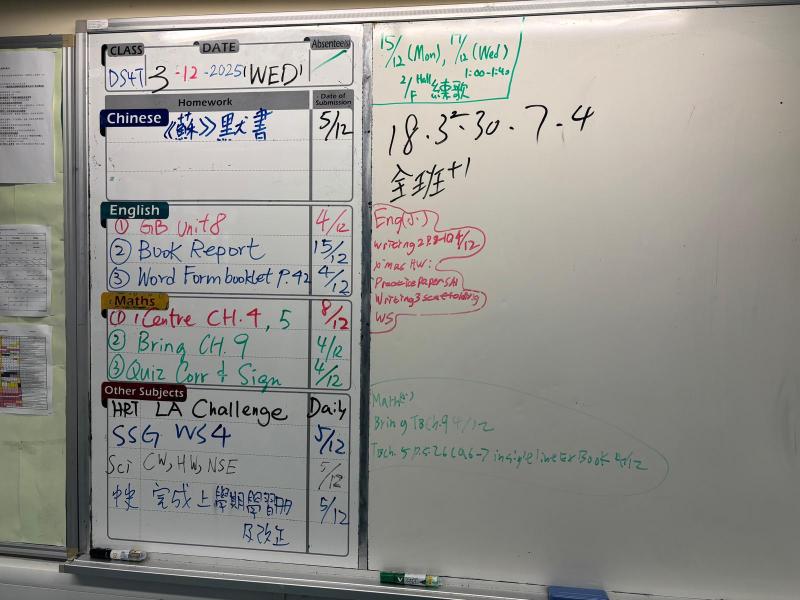 CLASS DATE Absentee(s)
DS4T 3-12-2025 (WED)
Homework Date of Submission
Chinese 《蘇》默書 5/12
English
① GB Unit 8 4/12
② Book Report 15/12
③ Word Form booklet P.42 4/12
Maths
① iCentre CH.4, 5 8/12
② Bring CH.9 4/12
③ Quiz Corr & Sign 4/12
Other Subjects
HRT LA Challenge Daily
SSG WS4 5/12
Sci CW, HW, NSE 5/12
中史 完成上學期學習冊 5/12
及改正
15/12 (Mon), 17/12 (Wed)
2/F Hall 練歌 1:00-1:40
18.3².30.7.4
全班+1
Eng
Writing 2 4/12
X'mas HW:
Practice Paper
Writing 3 scaffolding
WS
Maths
Bring TB ch.9 4/12
TB ch.5 single line Ex Book 4/12